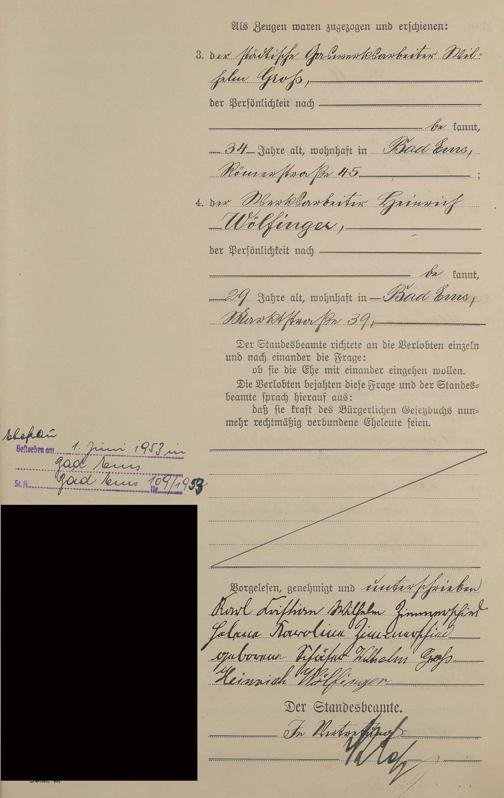 Als Zeugen waren zugezogen und erschienen:
3. der städtische Gaswerksarbeiter Wil-
helm Groß,
der Persönlichkeit nach
be kannt,
34 Jahre alt, wohnhaft in Bad Ems,
Römerstraße 45 ;
4. der Werksarbeiter Heinrich
Wölfinger,
der Persönlichkeit nach
be kannt,
29 Jahre alt, wohnhaft in Bad Ems,
Marktstraße 39,
Der Standesbeamte richtete an die Verlobten einzeln
und nach einander die Frage:
ob sie die Ehe mit einander eingehen wollen.
Die Verlobten bejahten diese Frage und der Standes-
beamte sprach hierauf aus:
daß sie kraft des Bürgerlichen Gesetzbuchs nun-
mehr rechtmäßig verbundene Eheleute seien.
Ehefrau
Gestorben am 1. Juni 1953 in
Bad Ems
St. A. Bad Ems Nr. 109/1953
Vorgelesen, genehmigt und unterschrieben
Karl Kristian Wilhelm Zimmerschied
Helena Karolina Zimmerschied
geborene Schäfer Wilhelm Groß
Heinrich Wölfinger
Der Standesbeamte.
In Vertretung